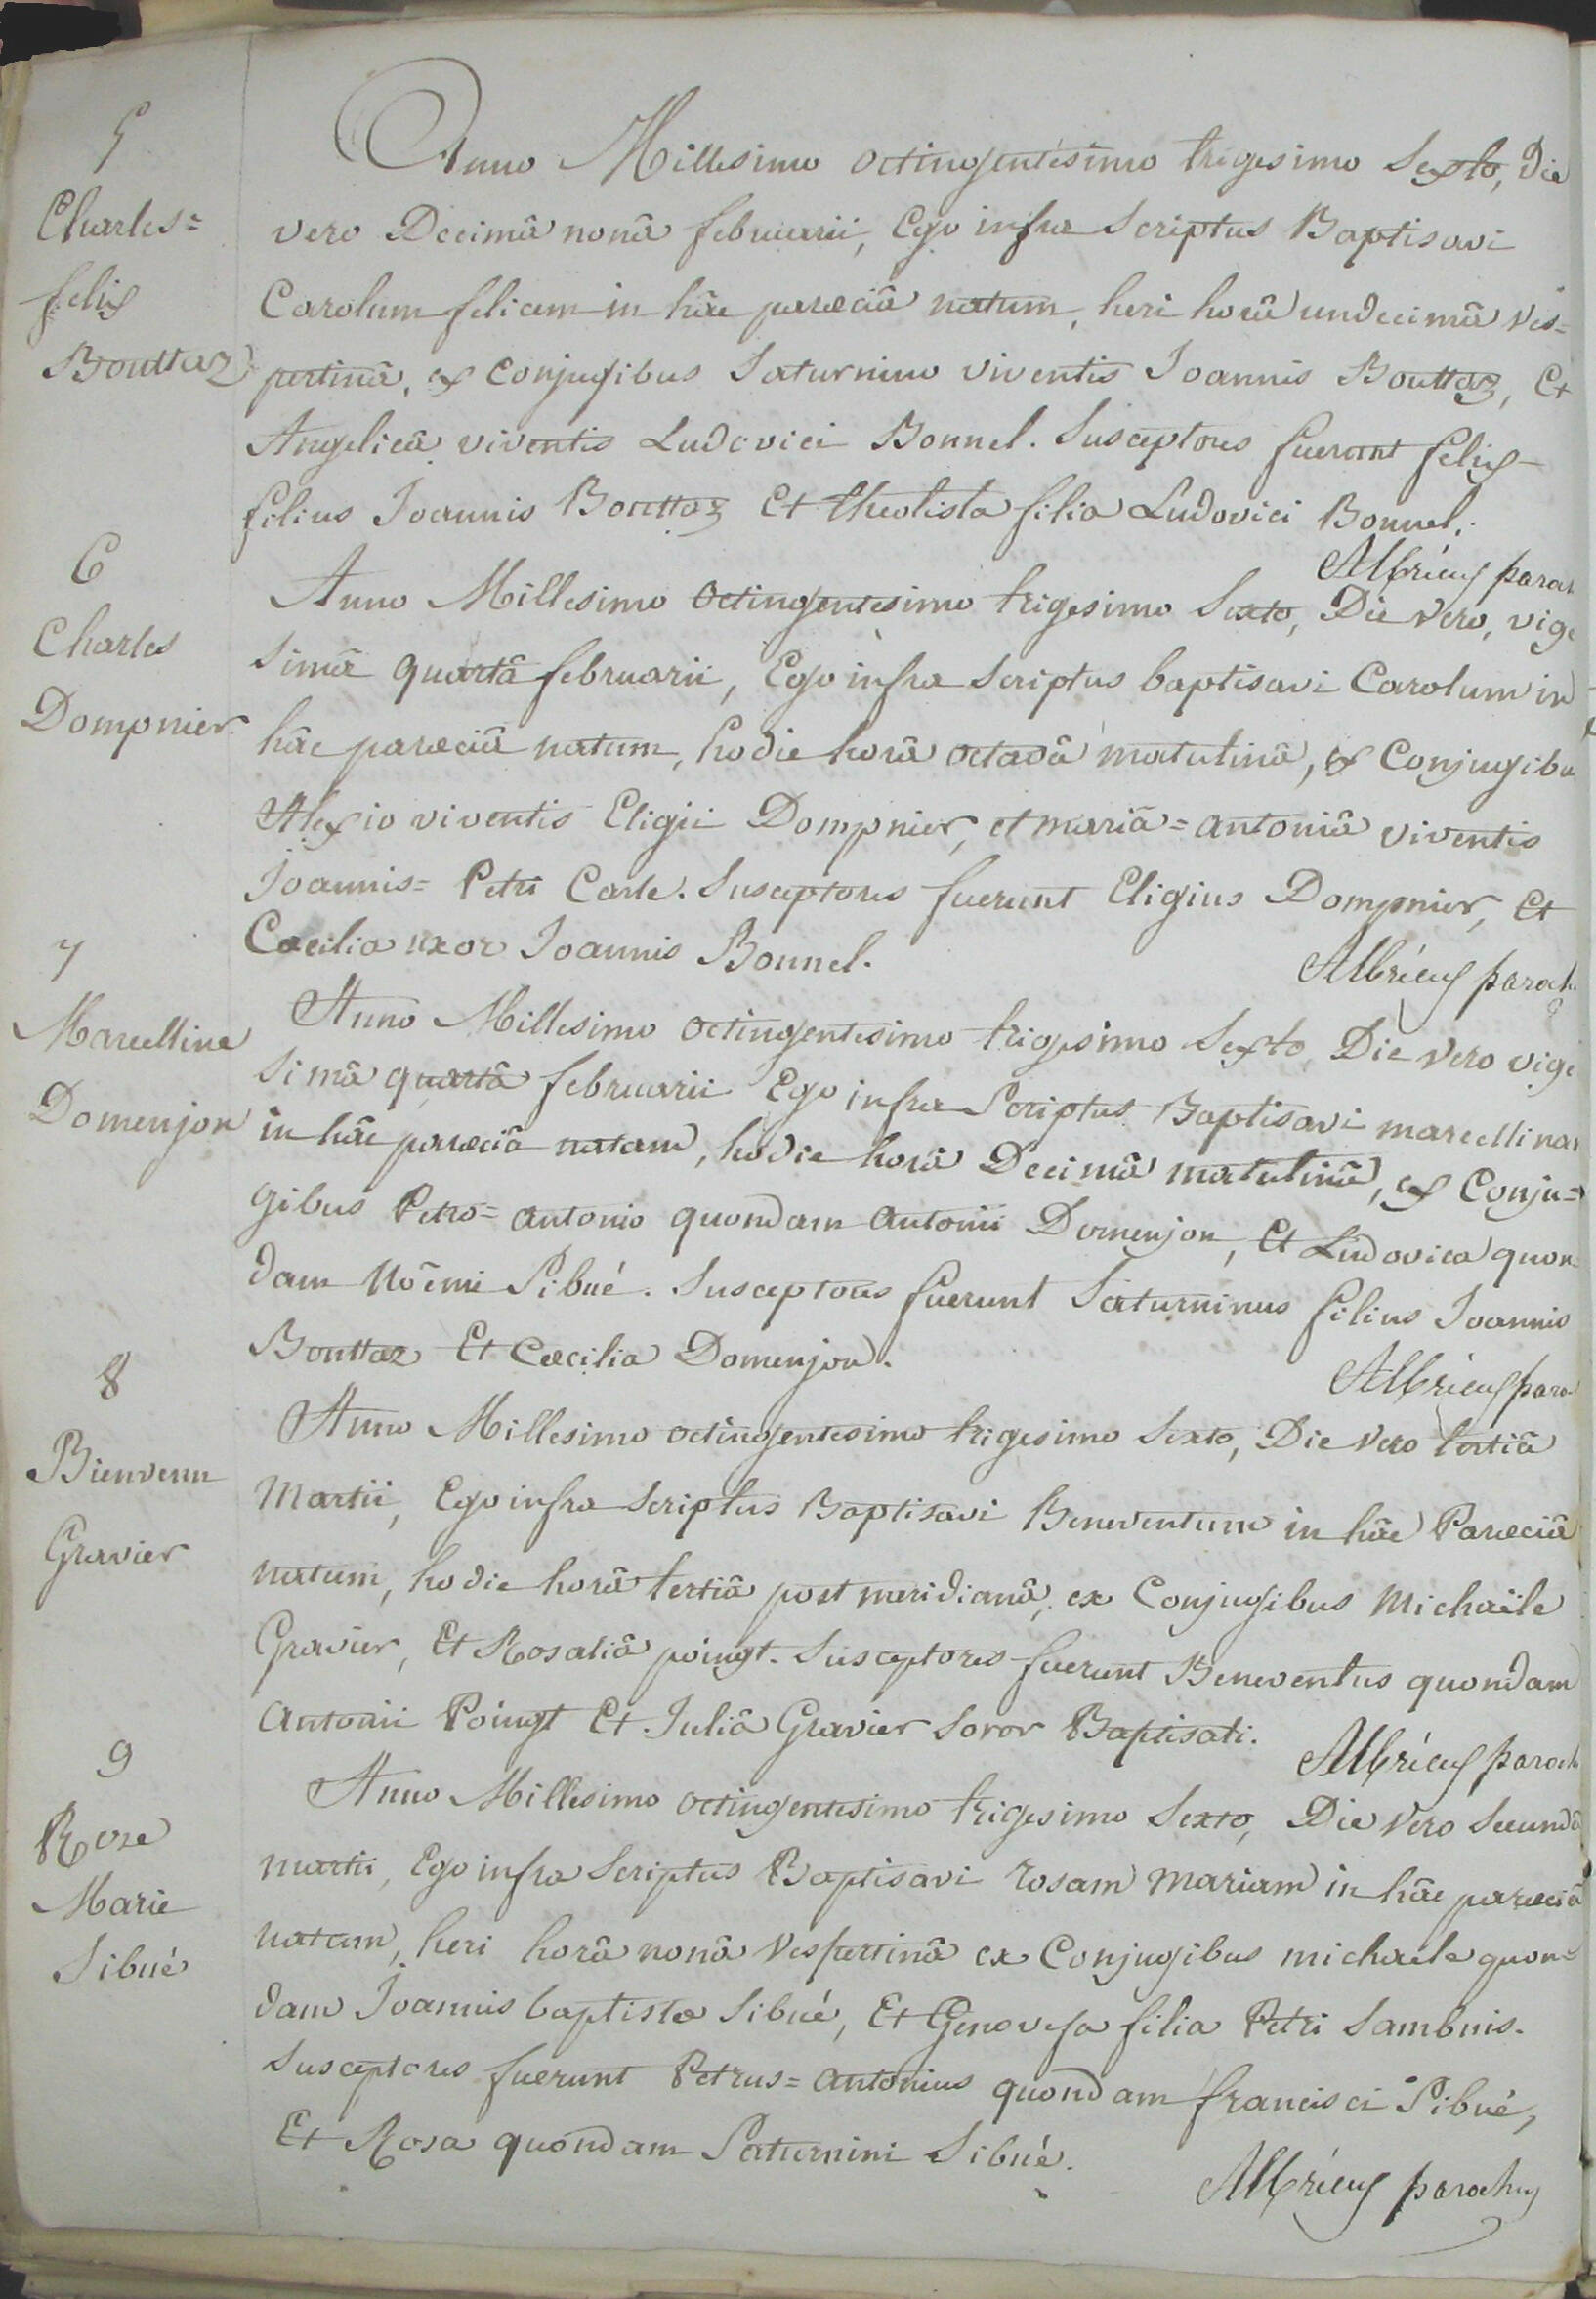 5
Charles=
felix
Bouttaz
Anno Millesimo octingentesimo trigesimo Sexto, Die
vero Decimâ nonâ februarii, Ego infra Scriptus Baptisavi
Carolum felicem in hâc parœciâ natum, heri horâ undecimâ ves=
pertinâ, ex Conjugibus Saturnino viventis Joannis Bouttaz, Et
Angelicâ viventis Ludovici Bonnel. Susceptores fuerunt felix
filius Joannis Bouttaz Et theotista filia Ludovici Bonnel.
Albrieux paroch
6
Charles
Dompnier
Anno Millesimo octingentesimo trigesimo Sexto, Die vero, vige
simâ quartâ februarii, Ego infra Scriptus baptisavi Carolum in
hâc parœciâ natum, hodie horâ octavâ matutinâ, ex Conjugibu
Alexio viventis Eligii Dompnier, et mariâ=antoniâ viventis
Joannis=Petri Carle. Susceptores fuerunt Eligius Dompnier, Et
Cæcilia uxor Joannis Bonnel.
Albrieux paroch
7
Marcelline
Domenjon
Anno Millesimo octingentesimo trigesimo Sexto, Die vero vige
simâ quartâ februarii Ego infra Scriptus Baptisavi marcellinam
in hâc parœciâ natam, hodie horâ Decimâ matutinâ, ex Conju=
gibus Petro=antonio quondam antonii Domenjon, Et Ludovica quon
dam Noëmi Sibué. Susceptores fuerunt Saturninus filius Joannis
Bouttaz Et Cæcilia Domenjon.
Albrieux paro
8
Bienvenu
Gravier
Anno Millesimo octingentesimo trigesimo Sexto, Die vero tertiâ
Martii, Ego infra Scriptus Baptisavi Beneventum in hâc Parœciâ
natum, hodie horâ tertiâ postmeridianâ, ex Conjugibus Michaële
Gravier, Et Rosaliâ poingt. Susceptores fuerunt Beneventus quondam
antonii Poingt Et Juliâ Gravier soror Baptisati.
Albrieux paroch
9
Rose
Marie
Sibué
Anno Millesimo octingentesimo trigesimo Sexto, Die vero secundâ
martii, Ego infra Scriptus Baptisavi rosam mariam in hâc parœciâ
natam, heri horâ nonâ vespertinâ ex Conjugibus michaele quon=
dam Joannis baptistæ Sibué, Et Genovefa filia Petri Sambuis.
Susceptores fuerunt Petrus=antonius quondam francisci Sibué,
Et Rosa quondam Saturnini Sibué.
Albrieux parochus